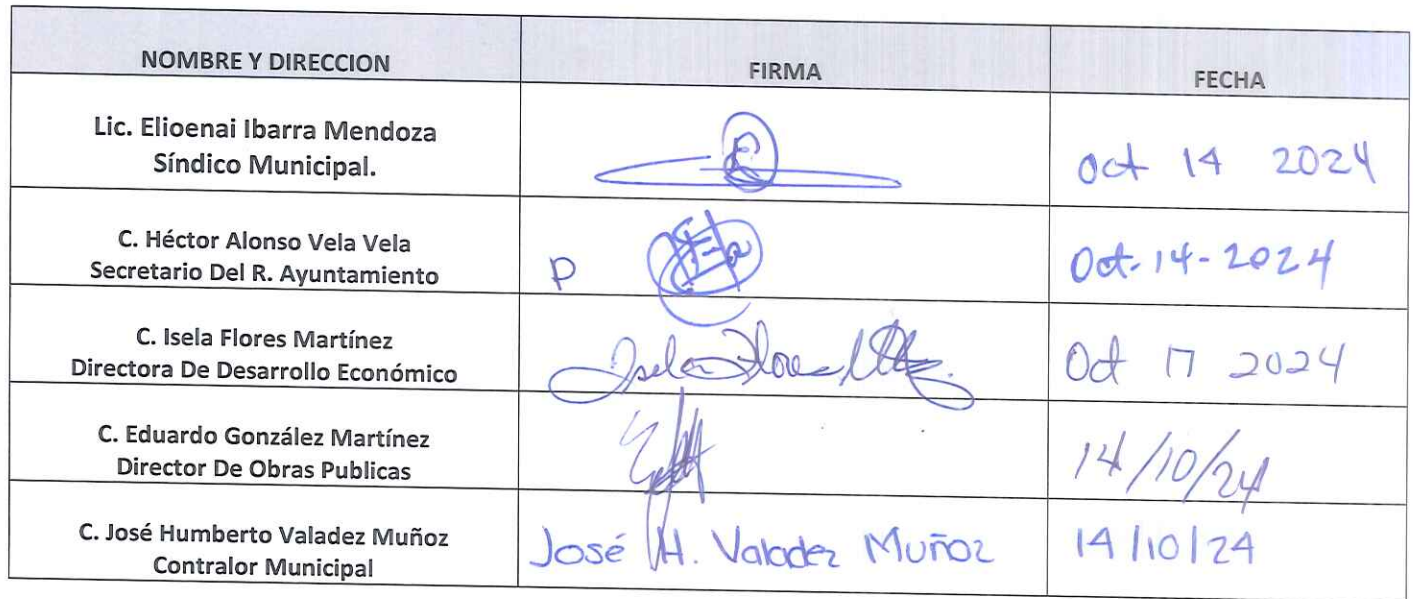 NOMBRE Y DIRECCION FIRMA FECHA
Lic. Elioenai Ibarra Mendoza
Síndico Municipal.
Oct 14 2024
C. Héctor Alonso Vela Vela
Secretario Del R. Ayuntamiento
P
Oct-14-2024
C. Isela Flores Martínez
Directora De Desarrollo Económico
Isela Flores Mtz.
Oct 17 2024
C. Eduardo González Martínez
Director De Obras Publicas
14/10/24
C. José Humberto Valadez Muñoz
Contralor Municipal
José H. Valadez Muñoz
14/10/24